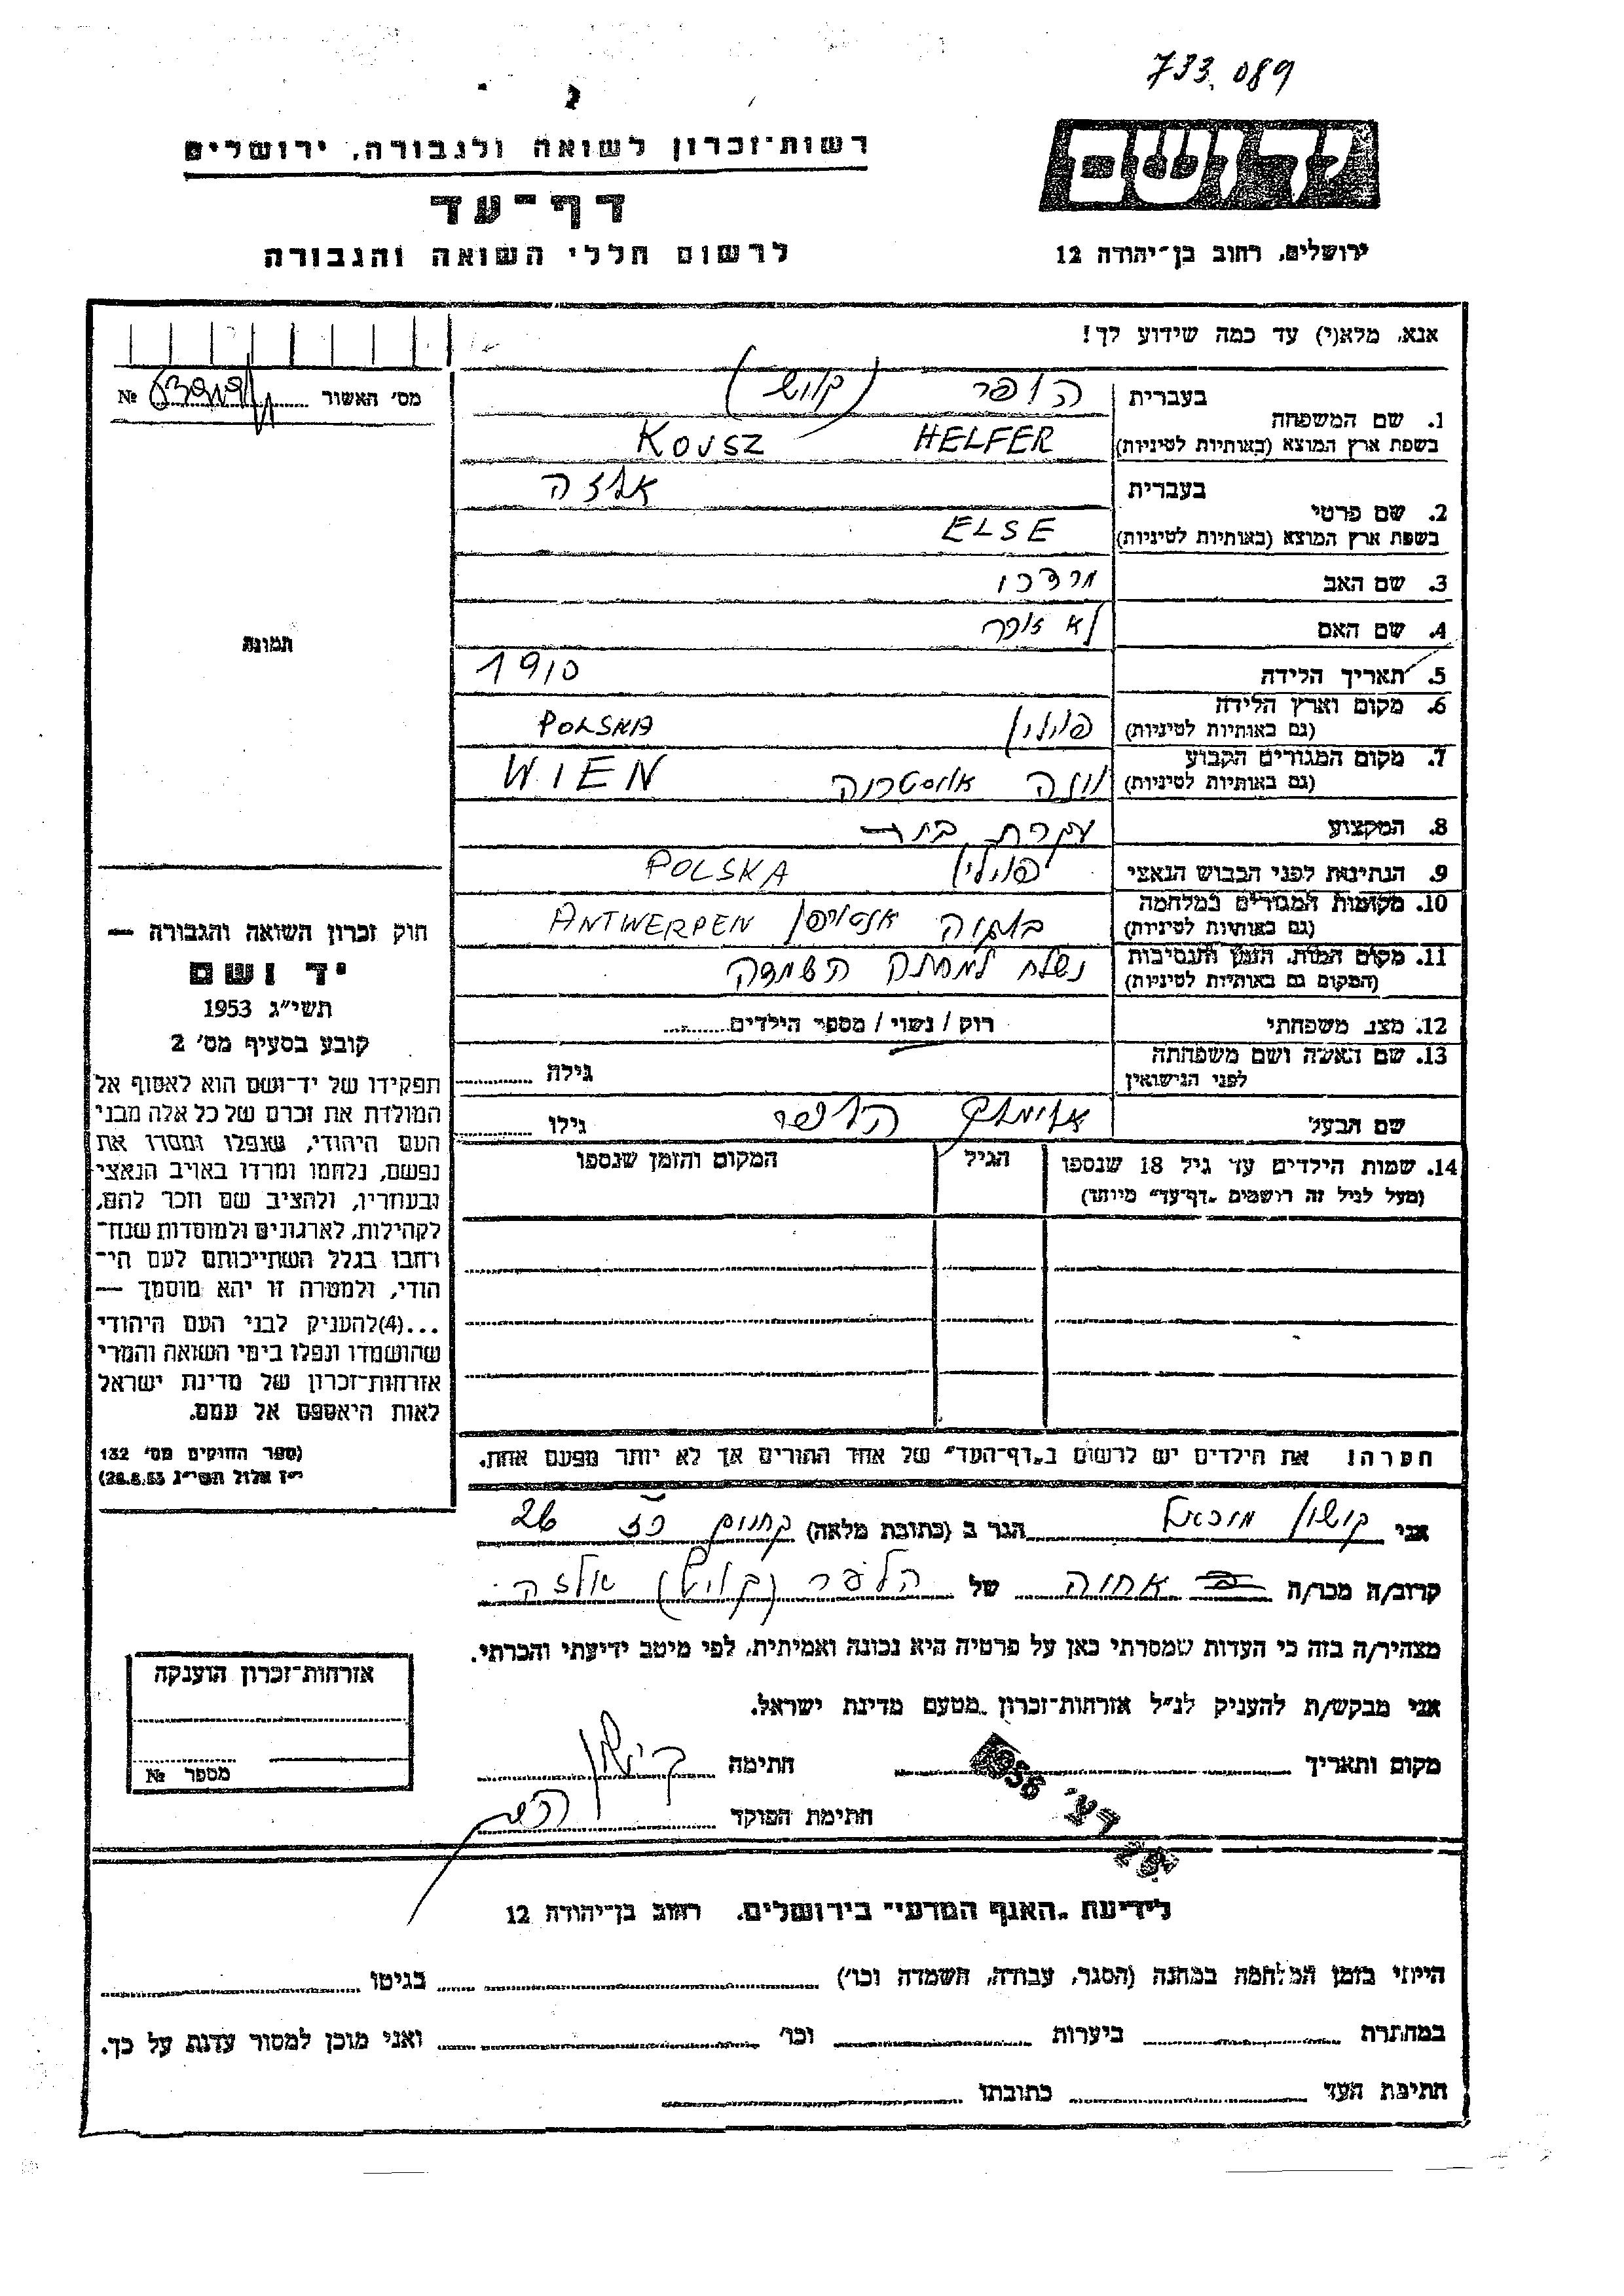 733.089
רשות־זכרון לשואה ולגבורה, ירושלים
דף־עד
לרשום חללי השואה והגבורה
יד ושם
ירושלים, רחוב בן־יהודה 12
אנא, מלא(י) עד כמה שידוע לך!
מס׳ האשור № 
1. שם המשפחה
בעברית
בשפת ארץ המוצא (באותיות לטיניות) HELFER KOUSZ
2. שם פרטי
בעברית אלזה
בשפת ארץ המוצא (באותיות לטיניות) ELSE
3. שם האב מרדכי
4. שם האם לא זוכר
5. תאריך הלידה 1910
6. מקום וארץ הלידה
(גם באותיות לטיניות) פולין POLSKA
7. מקום המגורים הקבוע
(גם באותיות לטיניות) וינה אוסטריה WIEN
8. המקצוע עקרת בית
9. הנתינות לפני הכבוש הנאצי פולין POLSKA
10. מקומות המגורים במלחמה
(גם באותיות לטיניות) בלגיה אנטורפן ANTWERPEN
11. מקום המות, הזמן והנסיבות
(המקום גם באותיות לטיניות) נשלח למחנה השמדה
12. מצב משפחתי רוק / נשוי / מספר הילדים
13. שם האשה ושם משפחתה
לפני הנישואין גילה
שם הבעל הלפר גילו
14. שמות הילדים עד גיל 18 שנספו הגיל המקום והזמן שנספו
(מעל לגיל זה רושמים „דף־עד״ מיוחד)
תמונת
חוק זכרון השואה והגבורה —
יד ושם
תשי״ג 1953
קובע בסעיף מס׳ 2
תפקידו של יד־ושם הוא לאסוף אל
המולדת את זכרם של כל אלה מבני
העם היהודי, שנפלו ומסרו את
נפשם, נלחמו ומרדו באויב הנאצי
ובעוזריו, ולהציב שם וזכר להם,
לקהילות, לארגונים ולמוסדות שנח־
רחבו בגלל השתייכותם לעם הי־
הודי, ולמטרה זו יהא מוסמך —
...(4)להעניק לבני העם היהודי
שהושמדו ונפלו בימי השואה והמרי
אזרחות־זכרון של מדינת ישראל
לאות היאספם אל עמם.
(ספר החוקים מס׳ 132
י״ז אלול תשי״ג 28.8.53)
הערה! את הילדים יש לרשום ב„דף־העד״ של אחד ההורים אך לא יותר מפעם אחת.
אני קושון מיכאל הגר ב (כתובת מלאה) 26
קרוב/ה מכר/ה אחיה של הלפר (קויש) אלזה
מצהיר/ה בזה כי העדות שמסרתי כאן על פרטיה היא נכונה ואמיתית, לפי מיטב ידיעתי והכרתי.
אני מבקש/ת להעניק לנ״ל אזרחות־זכרון מטעם מדינת ישראל.
מקום ותאריך חתימה
חתימת הפוקד
אזרחות־זכרון הוענקה
מספר №
לידיעת „האגף המדעי״ בירושלים, רחוב בן־יהודה 12
הייתי בזמן המלחמה במחנה (הסגר, עבודה, השמדה וכו׳) בגיטו
במחתרת ביערות וכו׳ ואני מוכן למסור עדות על כך.
חתימת העד כתובתו